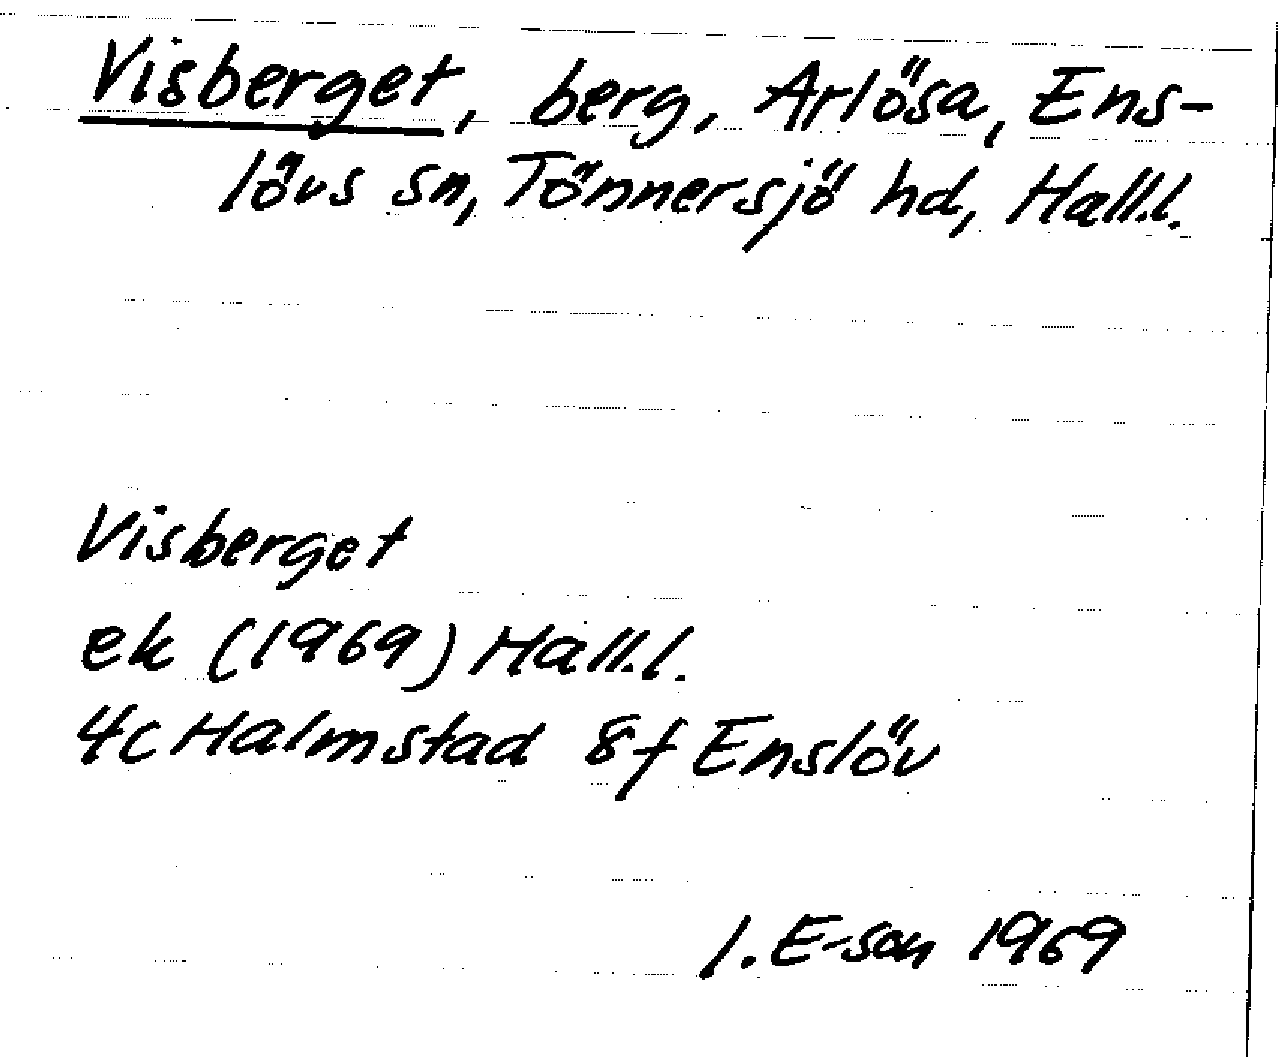 Visberget, berg, Arlösa, Ens-
lövs sn, Tönnersjö hd, Hall.l.
Visberget
ek (1969) Hall.l.
4c Halmstad 8f Enslöv
I. E-son 1969